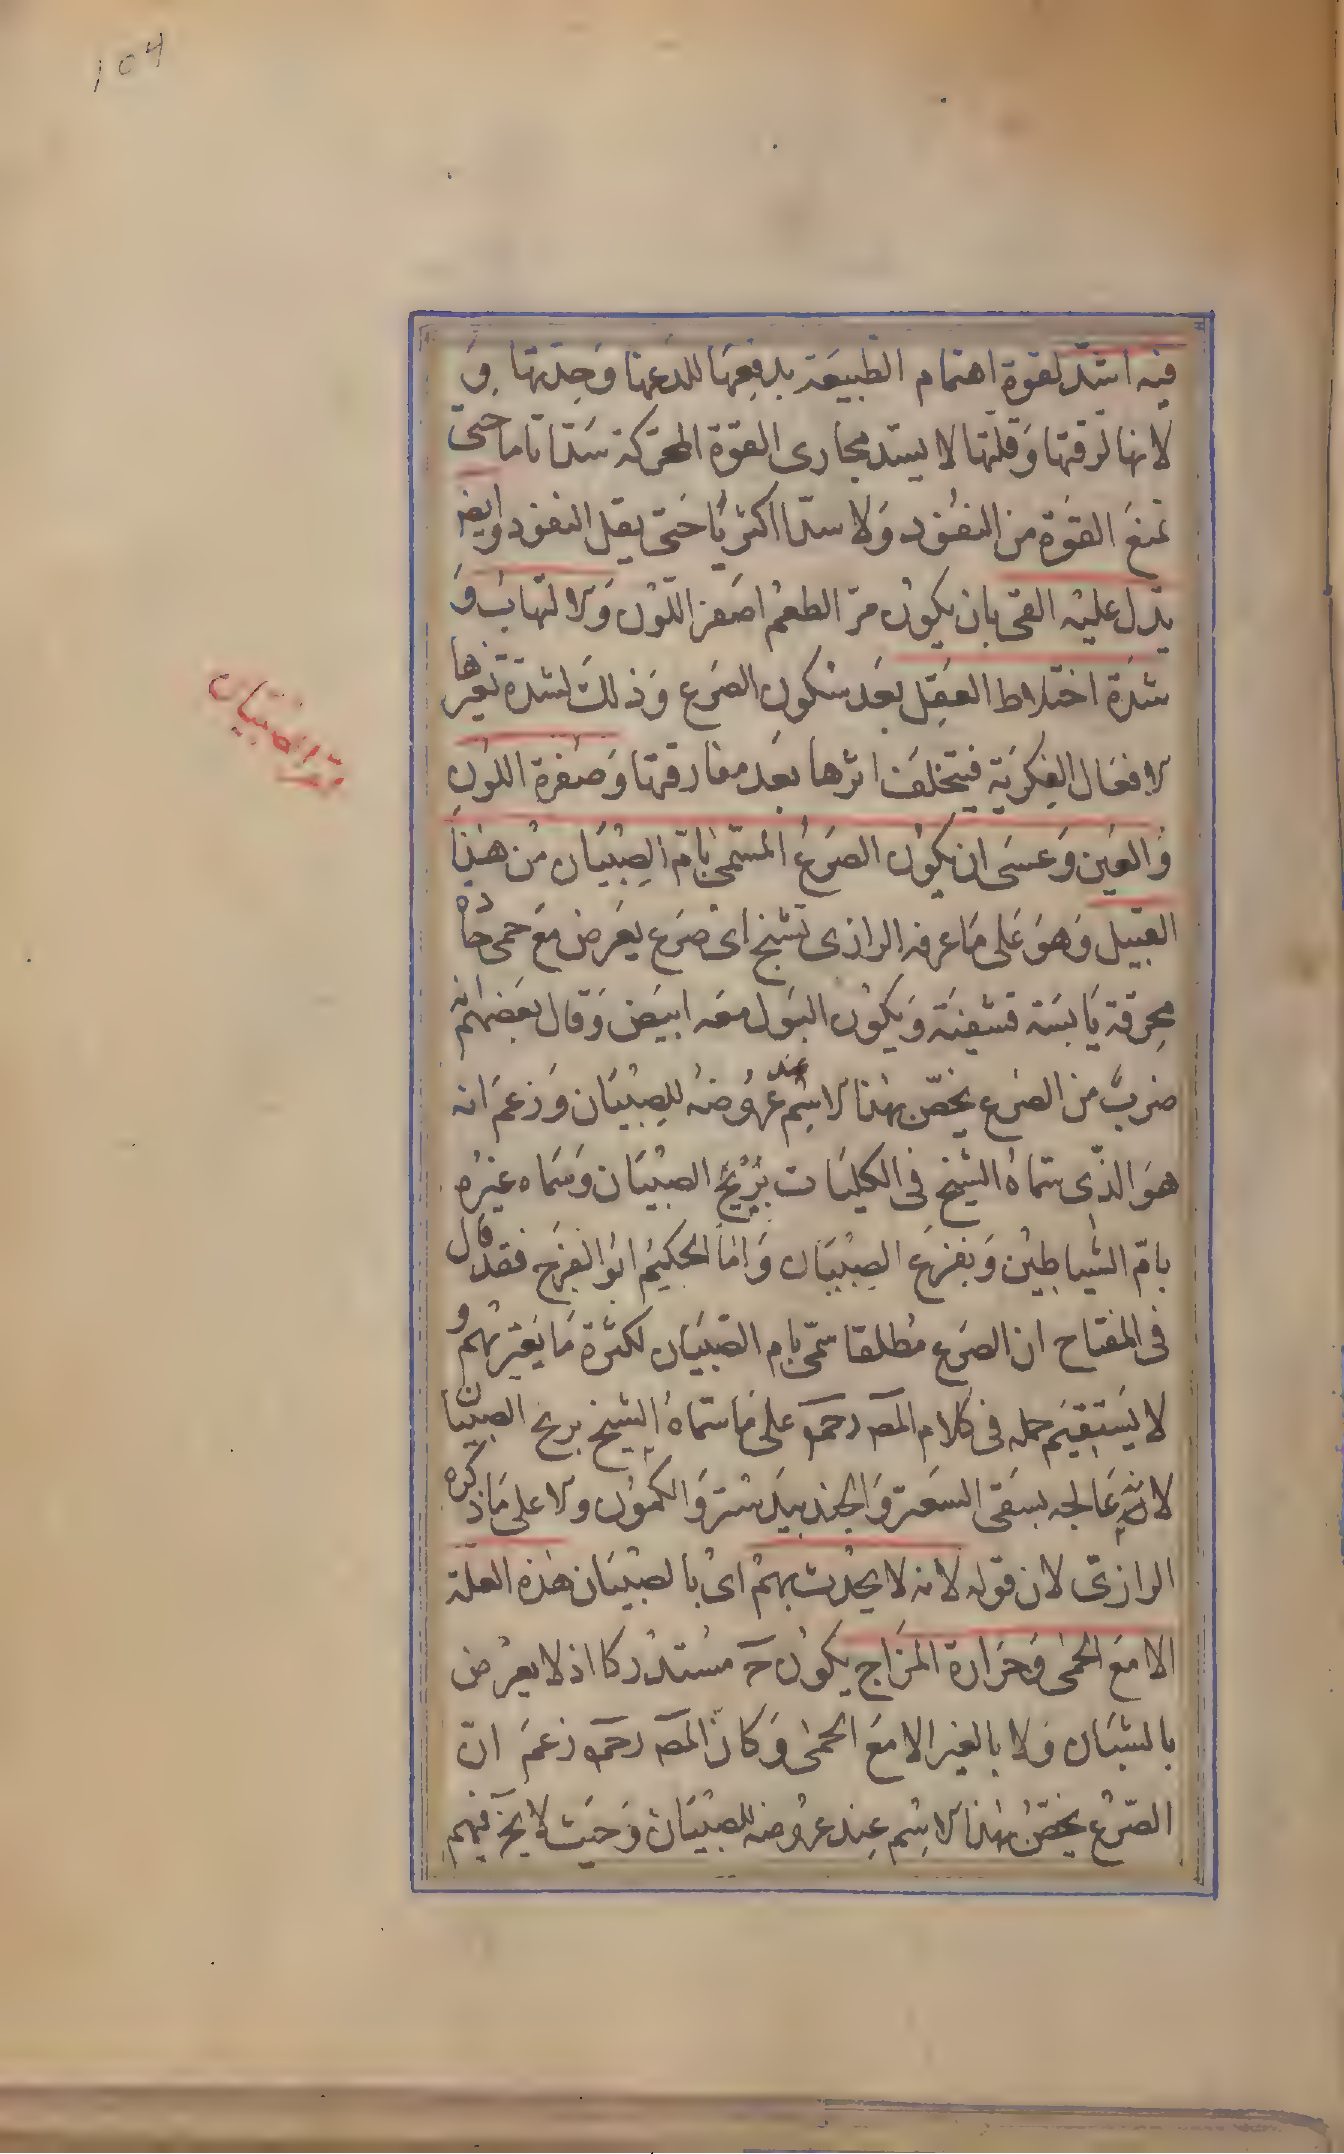 104
فيه اشدّ لقوة اهتمام الطبيعة بدفعها للذعها وحدتها و
لانها لرقتها وقلتها لا يسد مجارى القوة المحركة سدا تاما حتى
تمنع القوة من النفوذ ولا سدا اكثريا حتى يقل النفوذ وايضا
يدل عليه القئ بان يكون مرّ الطعم اصفر اللون والالتهاب و
شدة اختلاط العقل بعد سكون الصرع وذلك لشدة تغيرها
الافعال الفكرية فيتخلف اثرها بعد مفارقتها وصفرة اللون
والعين وعسى ان يكون الصرع المسمى بامّ الصبيان من هذا
القبيل وهو على ما عرفه الرازى تشنج اى صرع يعرض مع حمى حادة
محرقة يابسة قشفية ويكون البول معه ابيض وقال بعضهم انه
ضرب من الصرع يخصّ بهذا الاسم عند عروضه للصبيان وزعم انه
هو الذى سماه الشيخ فى الكليات بريح الصبيان وسماه غيره
بامّ الشياطين وبفزع الصبيان واما الحكيم ابو الفرج فقد قال
فى المفتاح ان الصرع مطلقا سمى بام الصبيان لكثرة ما يعتريهم و
لا يستقيم حمله فى كلام المصـ رحمه على ما سماه الشيخ بريح الصبيان
لانه عالجه بسقى السعتر والجندبيدستر والكمون ولا على ما ذكره
الرازىّ لان قوله لانه لا يحدث بهم اى بالصبيان هذه العلة
الا مع الحمى وحرارة المزاج يكون حـ مستدركا اذ لا يعرض
بالشبان ولا بالغير الا مع الحمى وكانّ المصـ رحمه زعم انّ
الصرع يخصّ بهذا الاسم عند عروضه للصبيان وحيث لا يخـ فيهم
امّ الصبيان